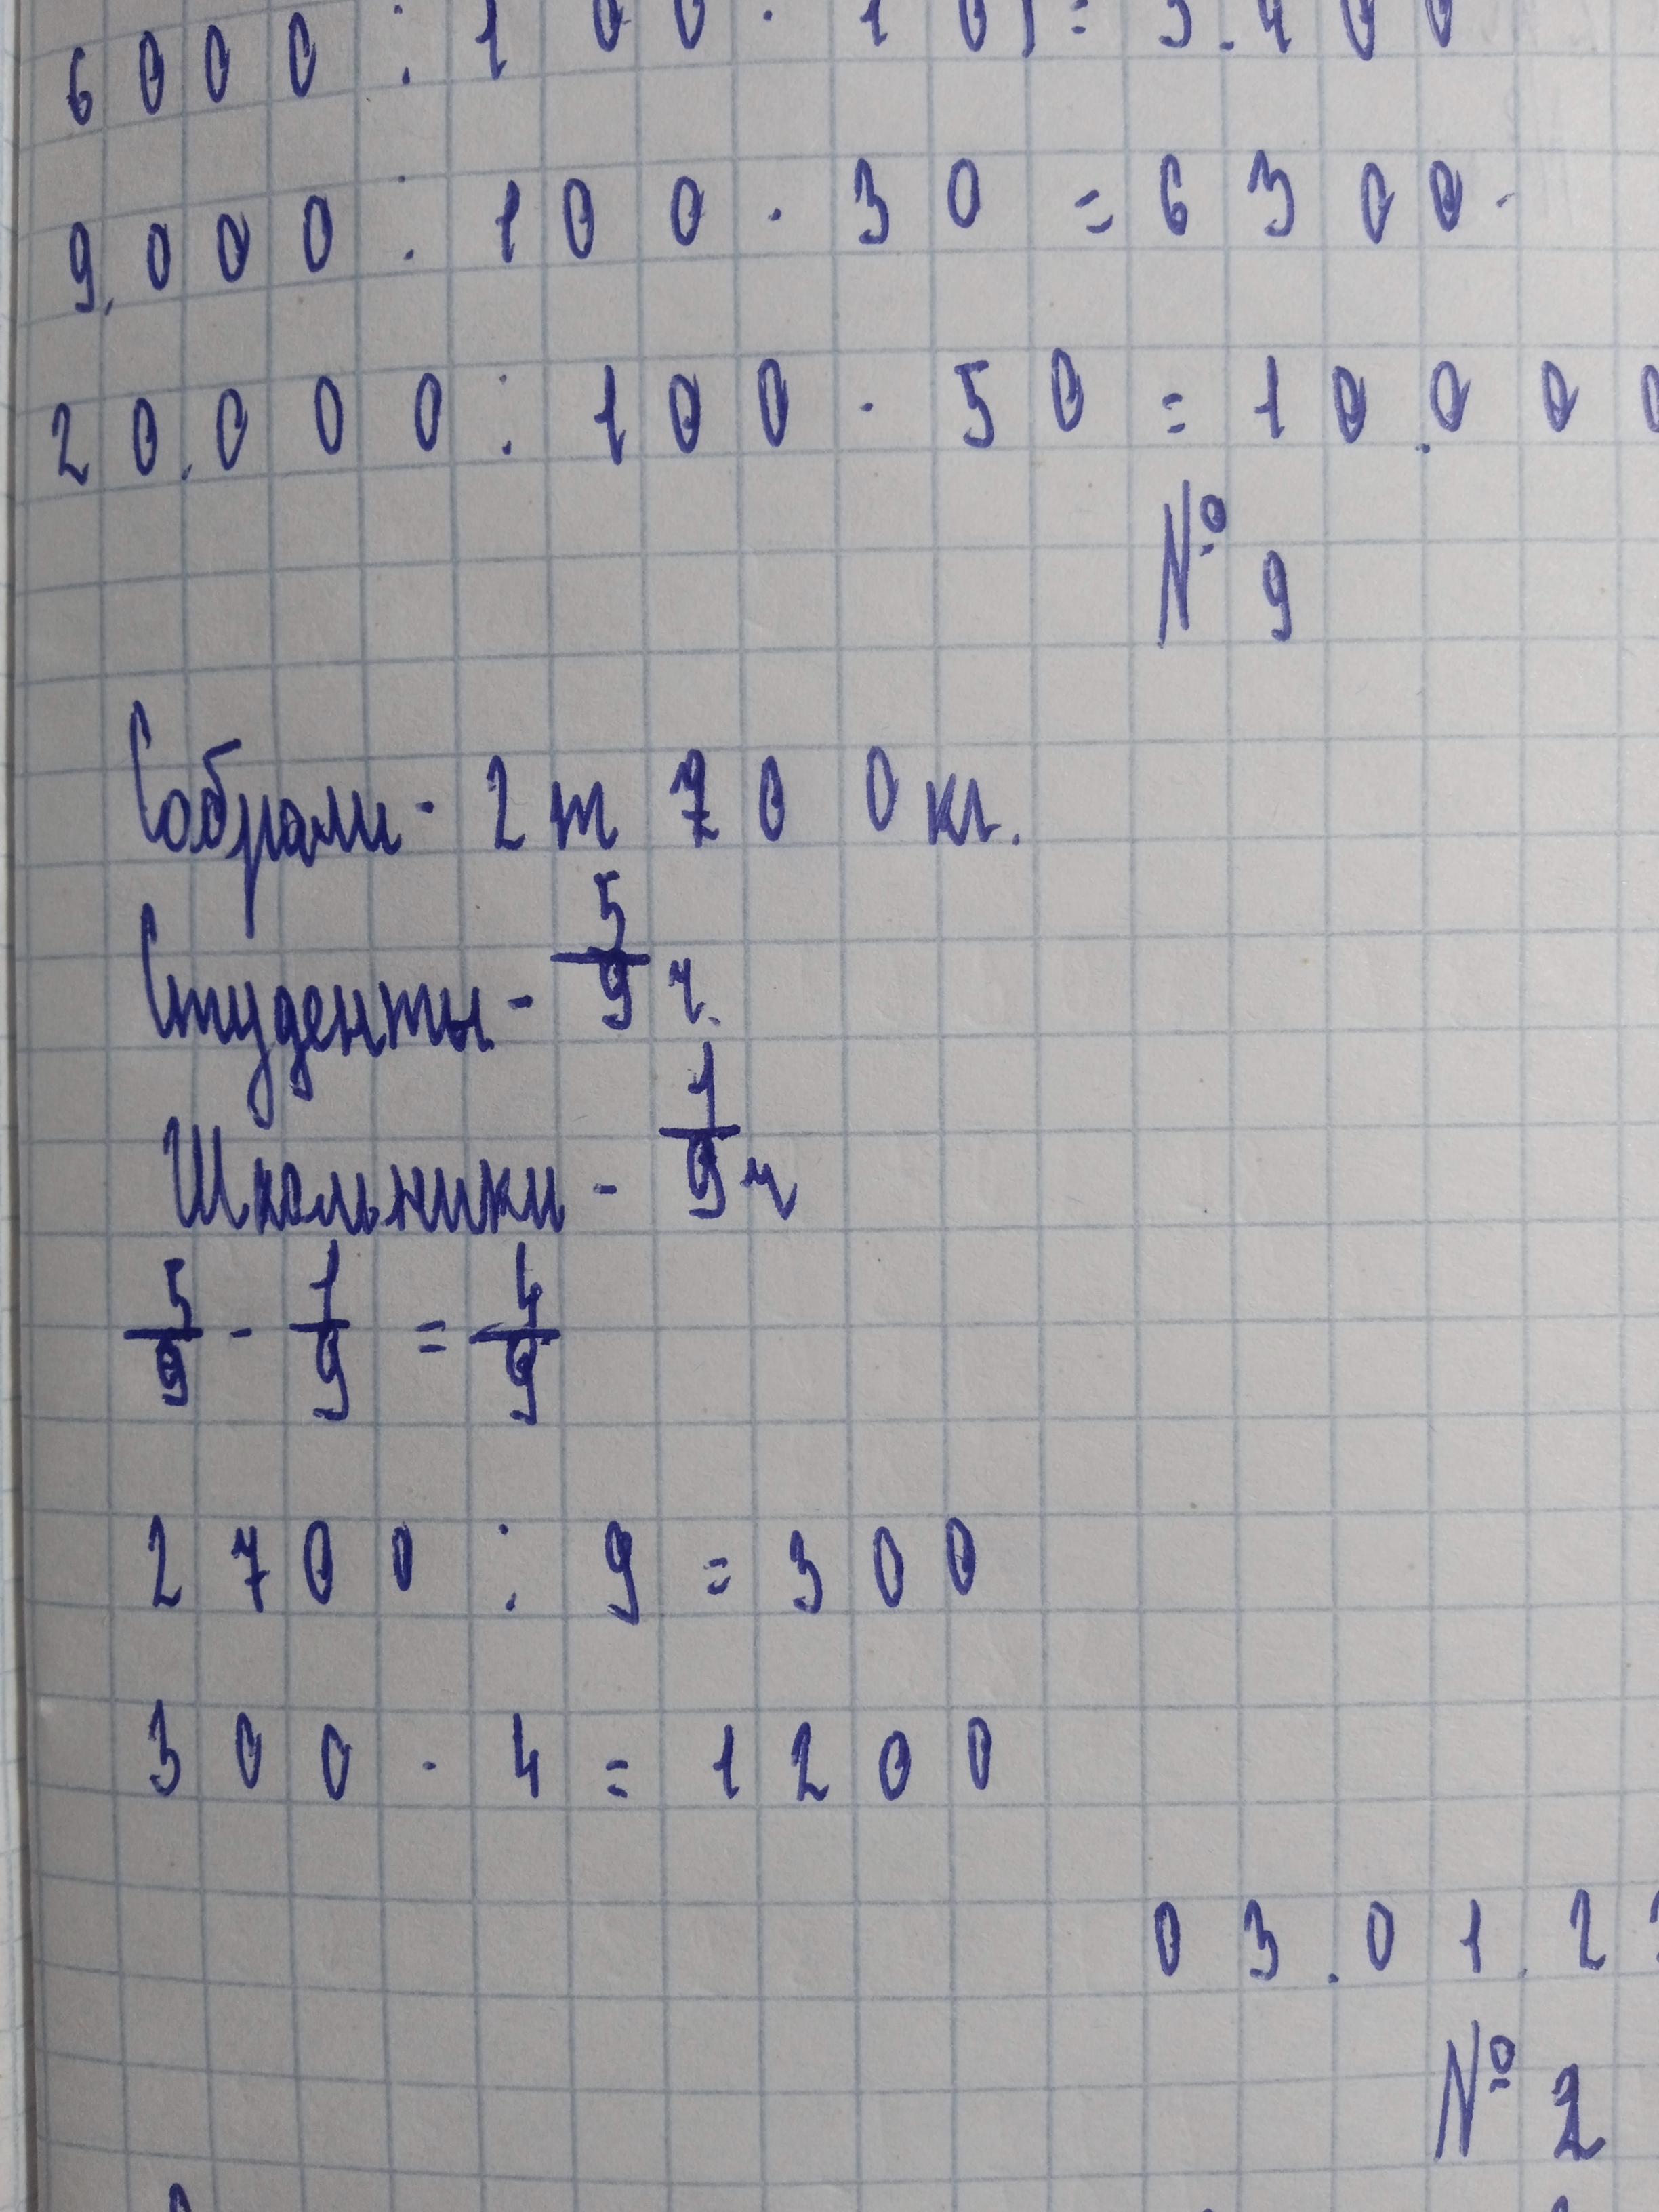 6000:100·10)=5.400
9.000:100·30=6300.
20.0000:100·50=10.000
№ 9
Собрали - 2 т 700 кг.
Студенты - 5/9 ч.
Школьники - 1/9 ч
5/9 - 1/9 = 4/9
2700:9=300
300·4=1200
03.01.22
№ 2